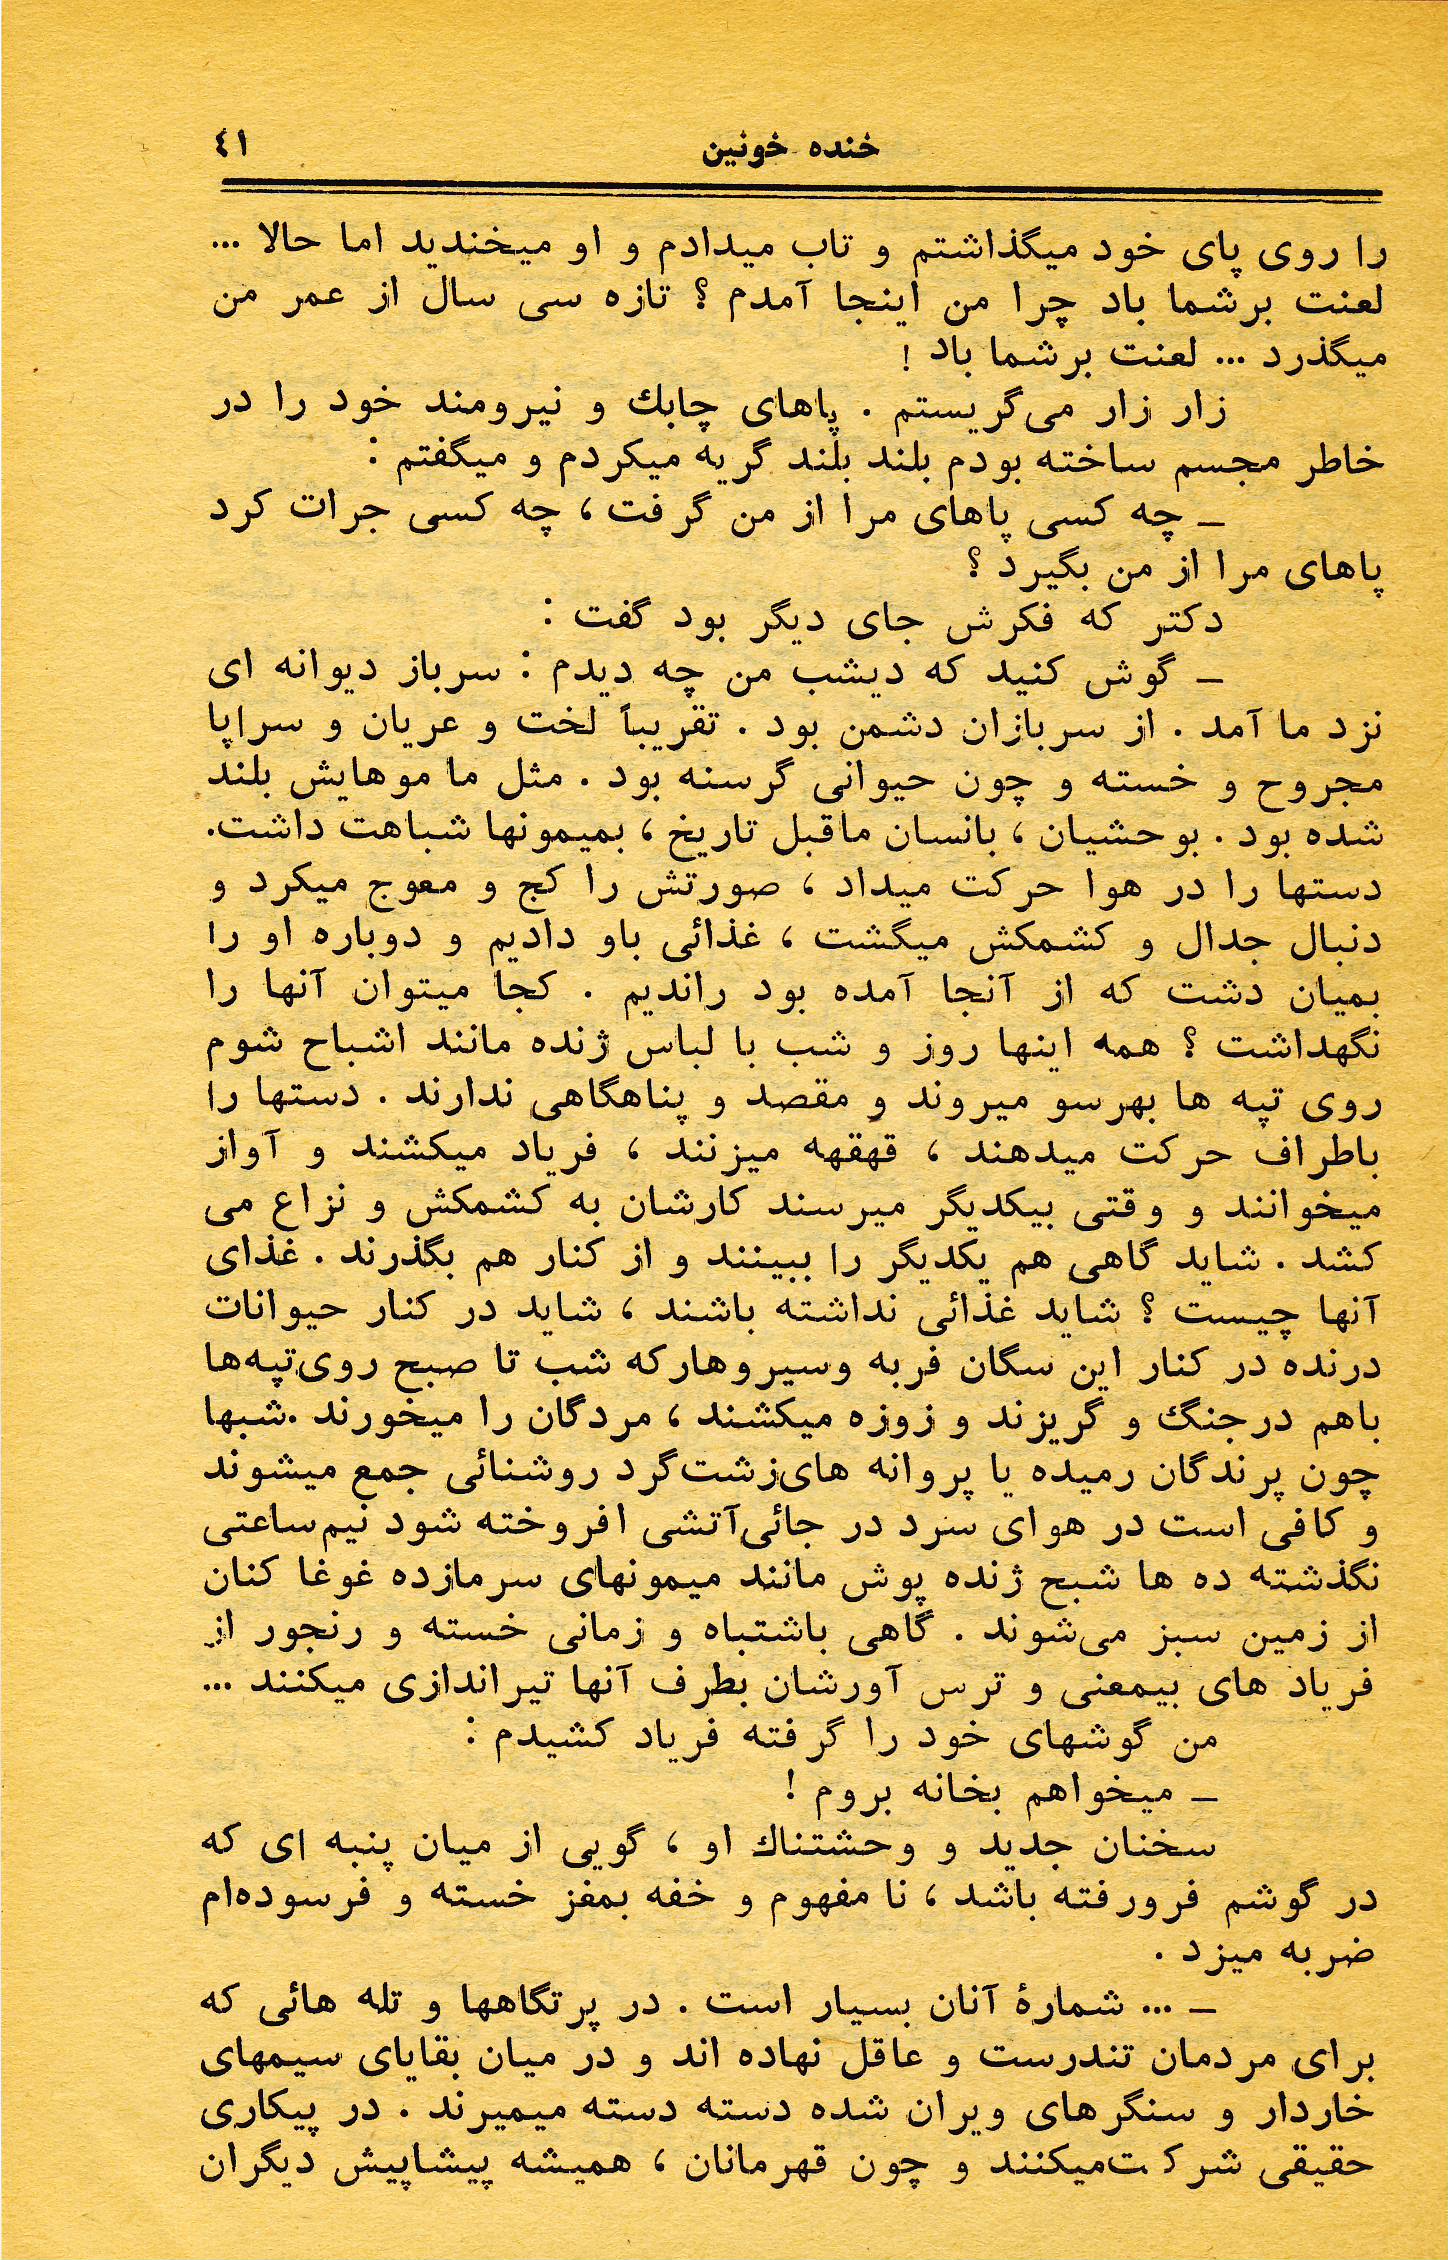 خنده خونین ٤١
را روی پای خود میگذاشتم و تاب میدادم و او میخندید اما حالا ...
لعنت برشما باد چرا من اینجا آمدم ؟ تازه سی سال از عمر من
میگذرد ... لعنت برشما باد !
زار زار می‌گریستم . پاهای چابك و نیرومند خود را در
خاطر مجسم ساخته بودم بلند بلند گریه میکردم و میگفتم :
ـ چه کسی پاهای مرا از من گرفت ، چه کسی جرات کرد
پاهای مرا از من بگیرد ؟
دکتر که فکرش جای دیگر بود گفت :
ـ گوش کنید که دیشب من چه دیدم : سرباز دیوانه ای
نزد ما آمد . از سربازان دشمن بود . تقریباً لخت و عریان و سراپا
مجروح و خسته و چون حیوانی گرسنه بود . مثل ما موهایش بلند
شده بود . بوحشیان ، بانسان ماقبل تاریخ ، بمیمونها شباهت داشت.
دستها را در هوا حرکت میداد ، صورتش را کج و معوج میکرد و
دنبال جدال و کشمکش میگشت ، غذائی باو دادیم و دوباره او را
بمیان دشت که از آنجا آمده بود راندیم . کجا میتوان آنها را
نگهداشت ؟ همه اینها روز و شب با لباس ژنده مانند اشباح شوم
روی تپه ها بهرسو میروند و مقصد و پناهگاهی ندارند . دستها را
باطراف حرکت میدهند ، قهقهه میزنند ، فریاد میکشند و آواز
میخوانند و وقتی بیکدیگر میرسند کارشان به کشمکش و نزاع می
کشد . شاید گاهی هم یکدیگر را ببینند و از کنار هم بگذرند . غذای
آنها چیست ؟ شاید غذائی نداشته باشند ، شاید در کنار حیوانات
درنده در کنار این سگان فربه وسیروهارکه شب تا صبح روی‌تپه‌ها
باهم درجنگ و گریزند و زوزه میکشند ، مردگان را میخورند .شبها
چون پرندگان رمیده یا پروانه های‌زشت‌گرد روشنائی جمع میشوند
و کافی است در هوای سرد در جائی‌آتشی افروخته شود نیم‌ساعتی
نگذشته ده ها شبح ژنده پوش مانند میمونهای سرمازده غوغا کنان
از زمین سبز می‌شوند . گاهی باشتباه و زمانی خسته و رنجور از
فریاد های بیمعنی و ترس آورشان بطرف آنها تیراندازی میکنند ...
من گوشهای خود را گرفته فریاد کشیدم :
ـ میخواهم بخانه بروم !
سخنان جدید و وحشتناك او ، گویی از میان پنبه ای که
در گوشم فرورفته باشد ، نا مفهوم و خفه بمغز خسته و فرسوده‌ام
ضربه میزد .
ـ ... شمارۀ آنان بسیار است . در پرتگاهها و تله هائی که
برای مردمان تندرست و عاقل نهاده اند و در میان بقایای سیمهای
خاردار و سنگرهای ویران شده دسته دسته میمیرند . در پیکاری
حقیقی شرکت‌میکنند و چون قهرمانان ، همیشه پیشاپیش دیگران